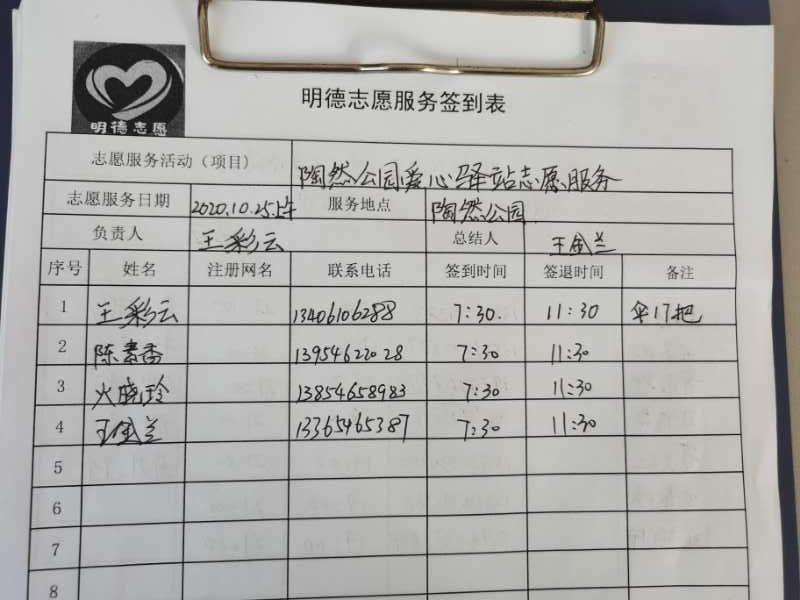 明德志愿
明德志愿服务签到表
志愿服务活动（项目） 陶然公园爱心驿站志愿服务
志愿服务日期 2020.10.25上午 服务地点 陶然公园
负责人 王彩云 总结人 王金兰
序号 姓名 注册网名 联系电话 签到时间 签退时间 备注
1 王彩云 13406106288 7:30. 11:30 伞17把
2 陈素香 13954622028 7:30 11:30
3 火晓玲 13854658983 7:30 11:30
4 王金兰 13365465387 7:30 11:30
5
6
7
8